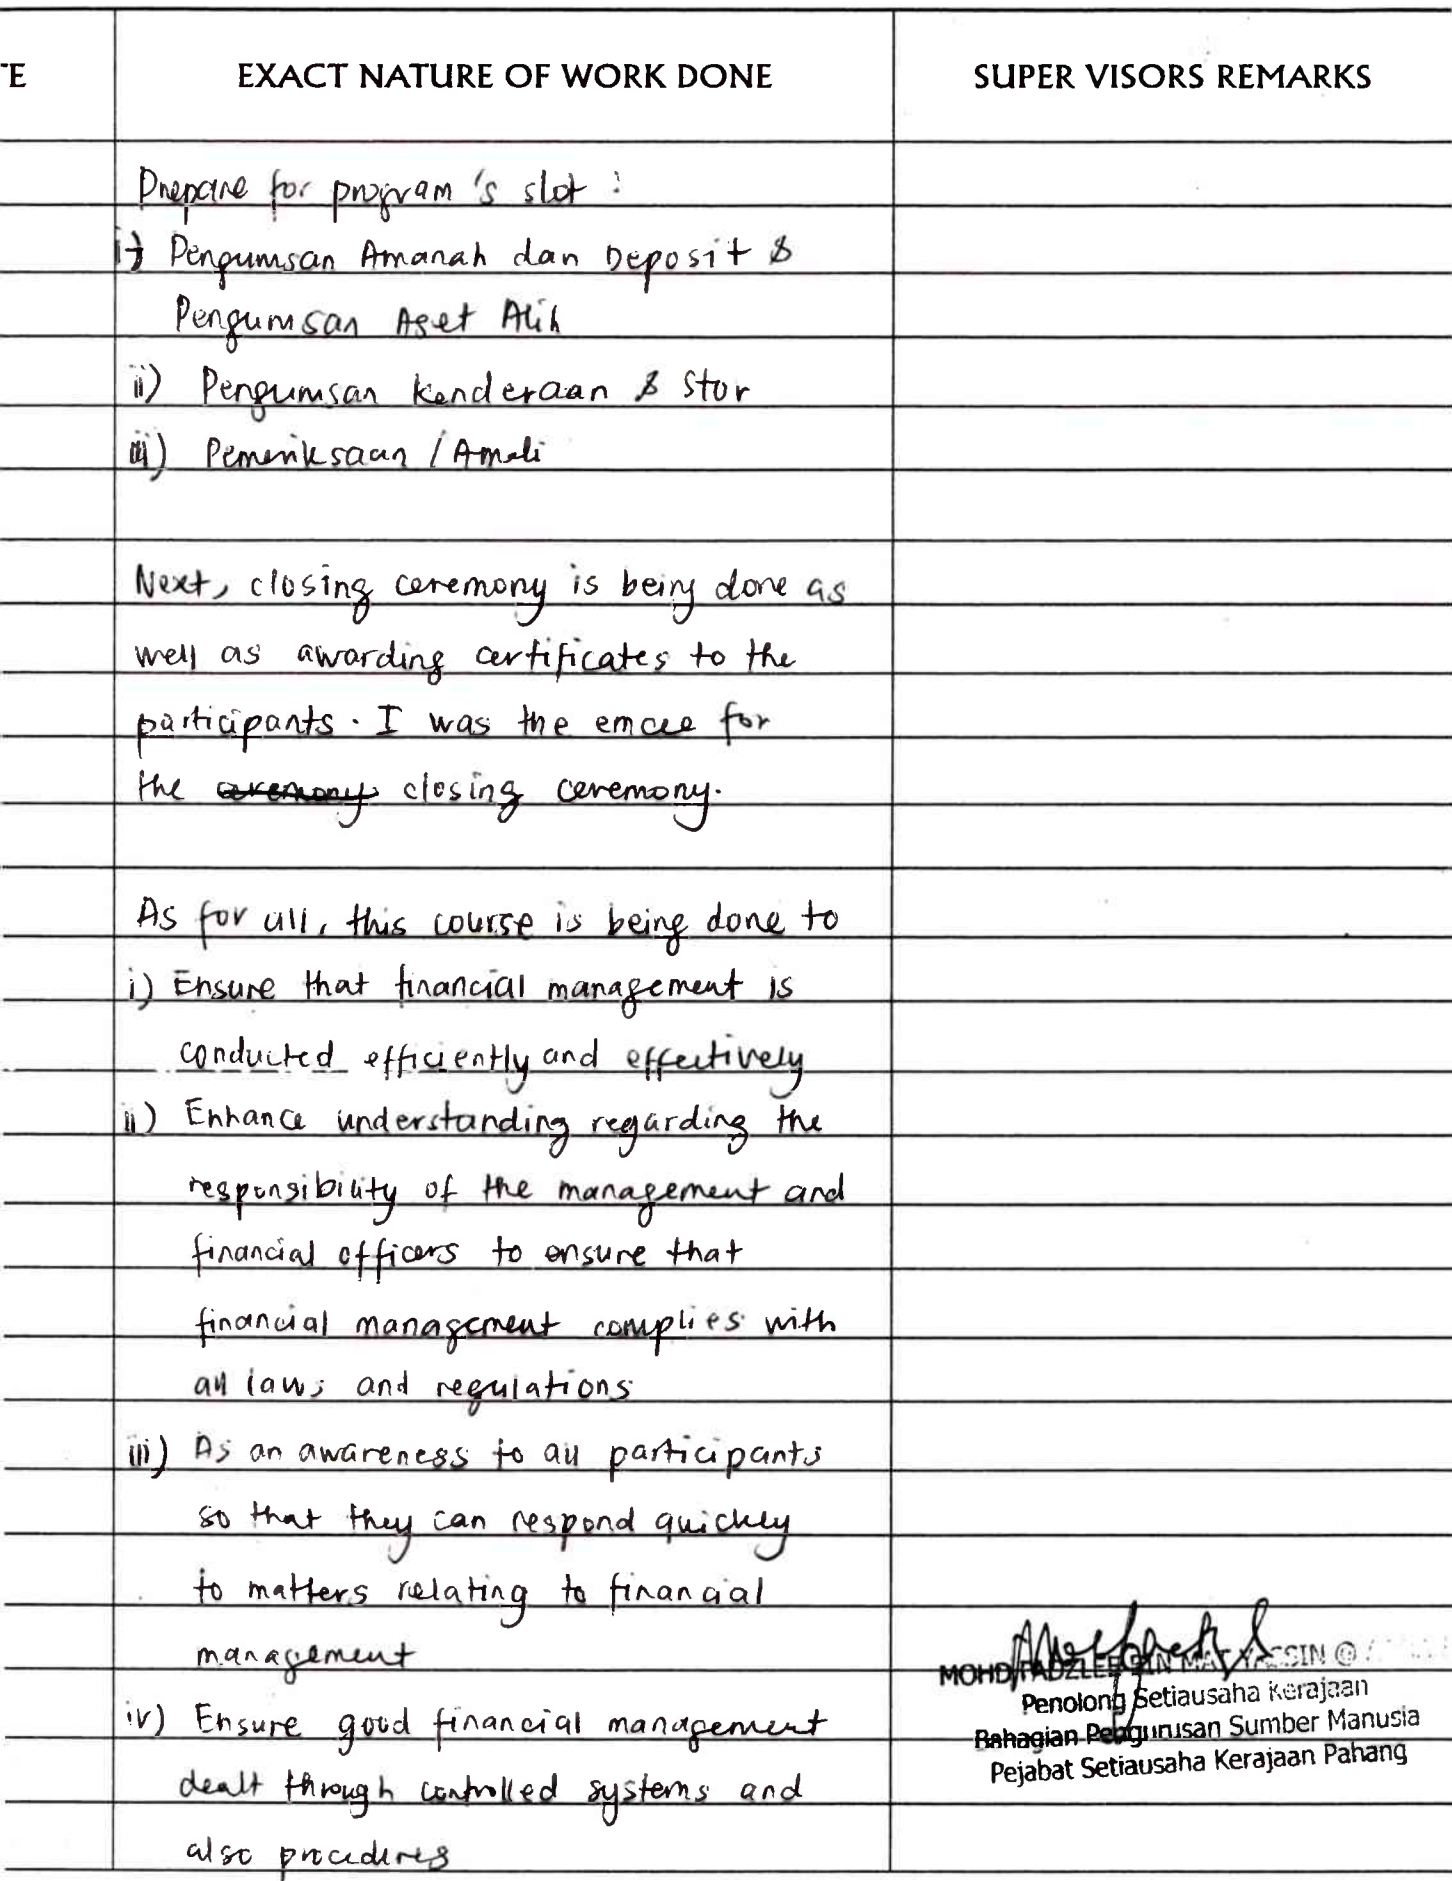 TE
EXACT NATURE OF WORK DONE
SUPER VISORS REMARKS
Prepare for program's slot :
i) Pengurusan Amanah dan Deposit &
Pengurusan Aset Alih
ii) Pengurusan kenderaan & Stor
iii) Pemeriksaan / Amali
Next, closing ceremony is being done as
well as awarding certificates to the
participants. I was the emcee for
the ceremony closing ceremony.
As for all, this course is being done to
i) Ensure that financial management is
conducted efficiently and effectively
ii) Enhance understanding regarding the
responsibility of the management and
financial officers to ensure that
financial management complies with
all laws and regulations
iii) As an awareness to all participants
so that they can respond quickly
to matters relating to financial
management
iv) Ensure good financial management
dealt through controlled systems and
also procedures
MOHD FADZLEE BIN MAT YASSIN @
Penolong Setiausaha Kerajaan
Bahagian Pengurusan Sumber Manusia
Pejabat Setiausaha Kerajaan Pahang